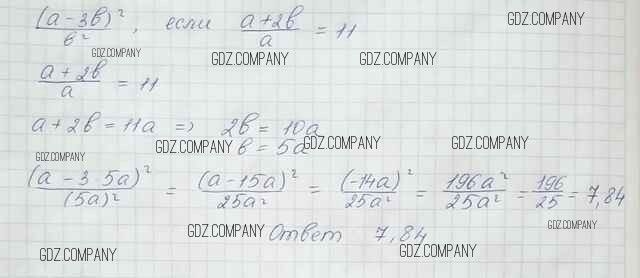 (a - 3b)² / b², если (a + 2b) / a = 11
GDZ.COMPANY
GDZ.COMPANY
GDZ.COMPANY
GDZ.COMPANY
(a + 2b) / a = 11
a + 2b = 11a => 2b = 10a
b = 5a
GDZ.COMPANY
GDZ.COMPANY
GDZ.COMPANY
GDZ.COMPANY
(a - 3 5a)² / (5a)² = (a - 15a)² / 25a² = (-14a)² / 25a² = 196a² / 25a² = 196 / 25 = 7,84
GDZ.COMPANY
GDZ.COMPANY
Ответ 7,84
GDZ.COMPANY
GDZ.COMPANY